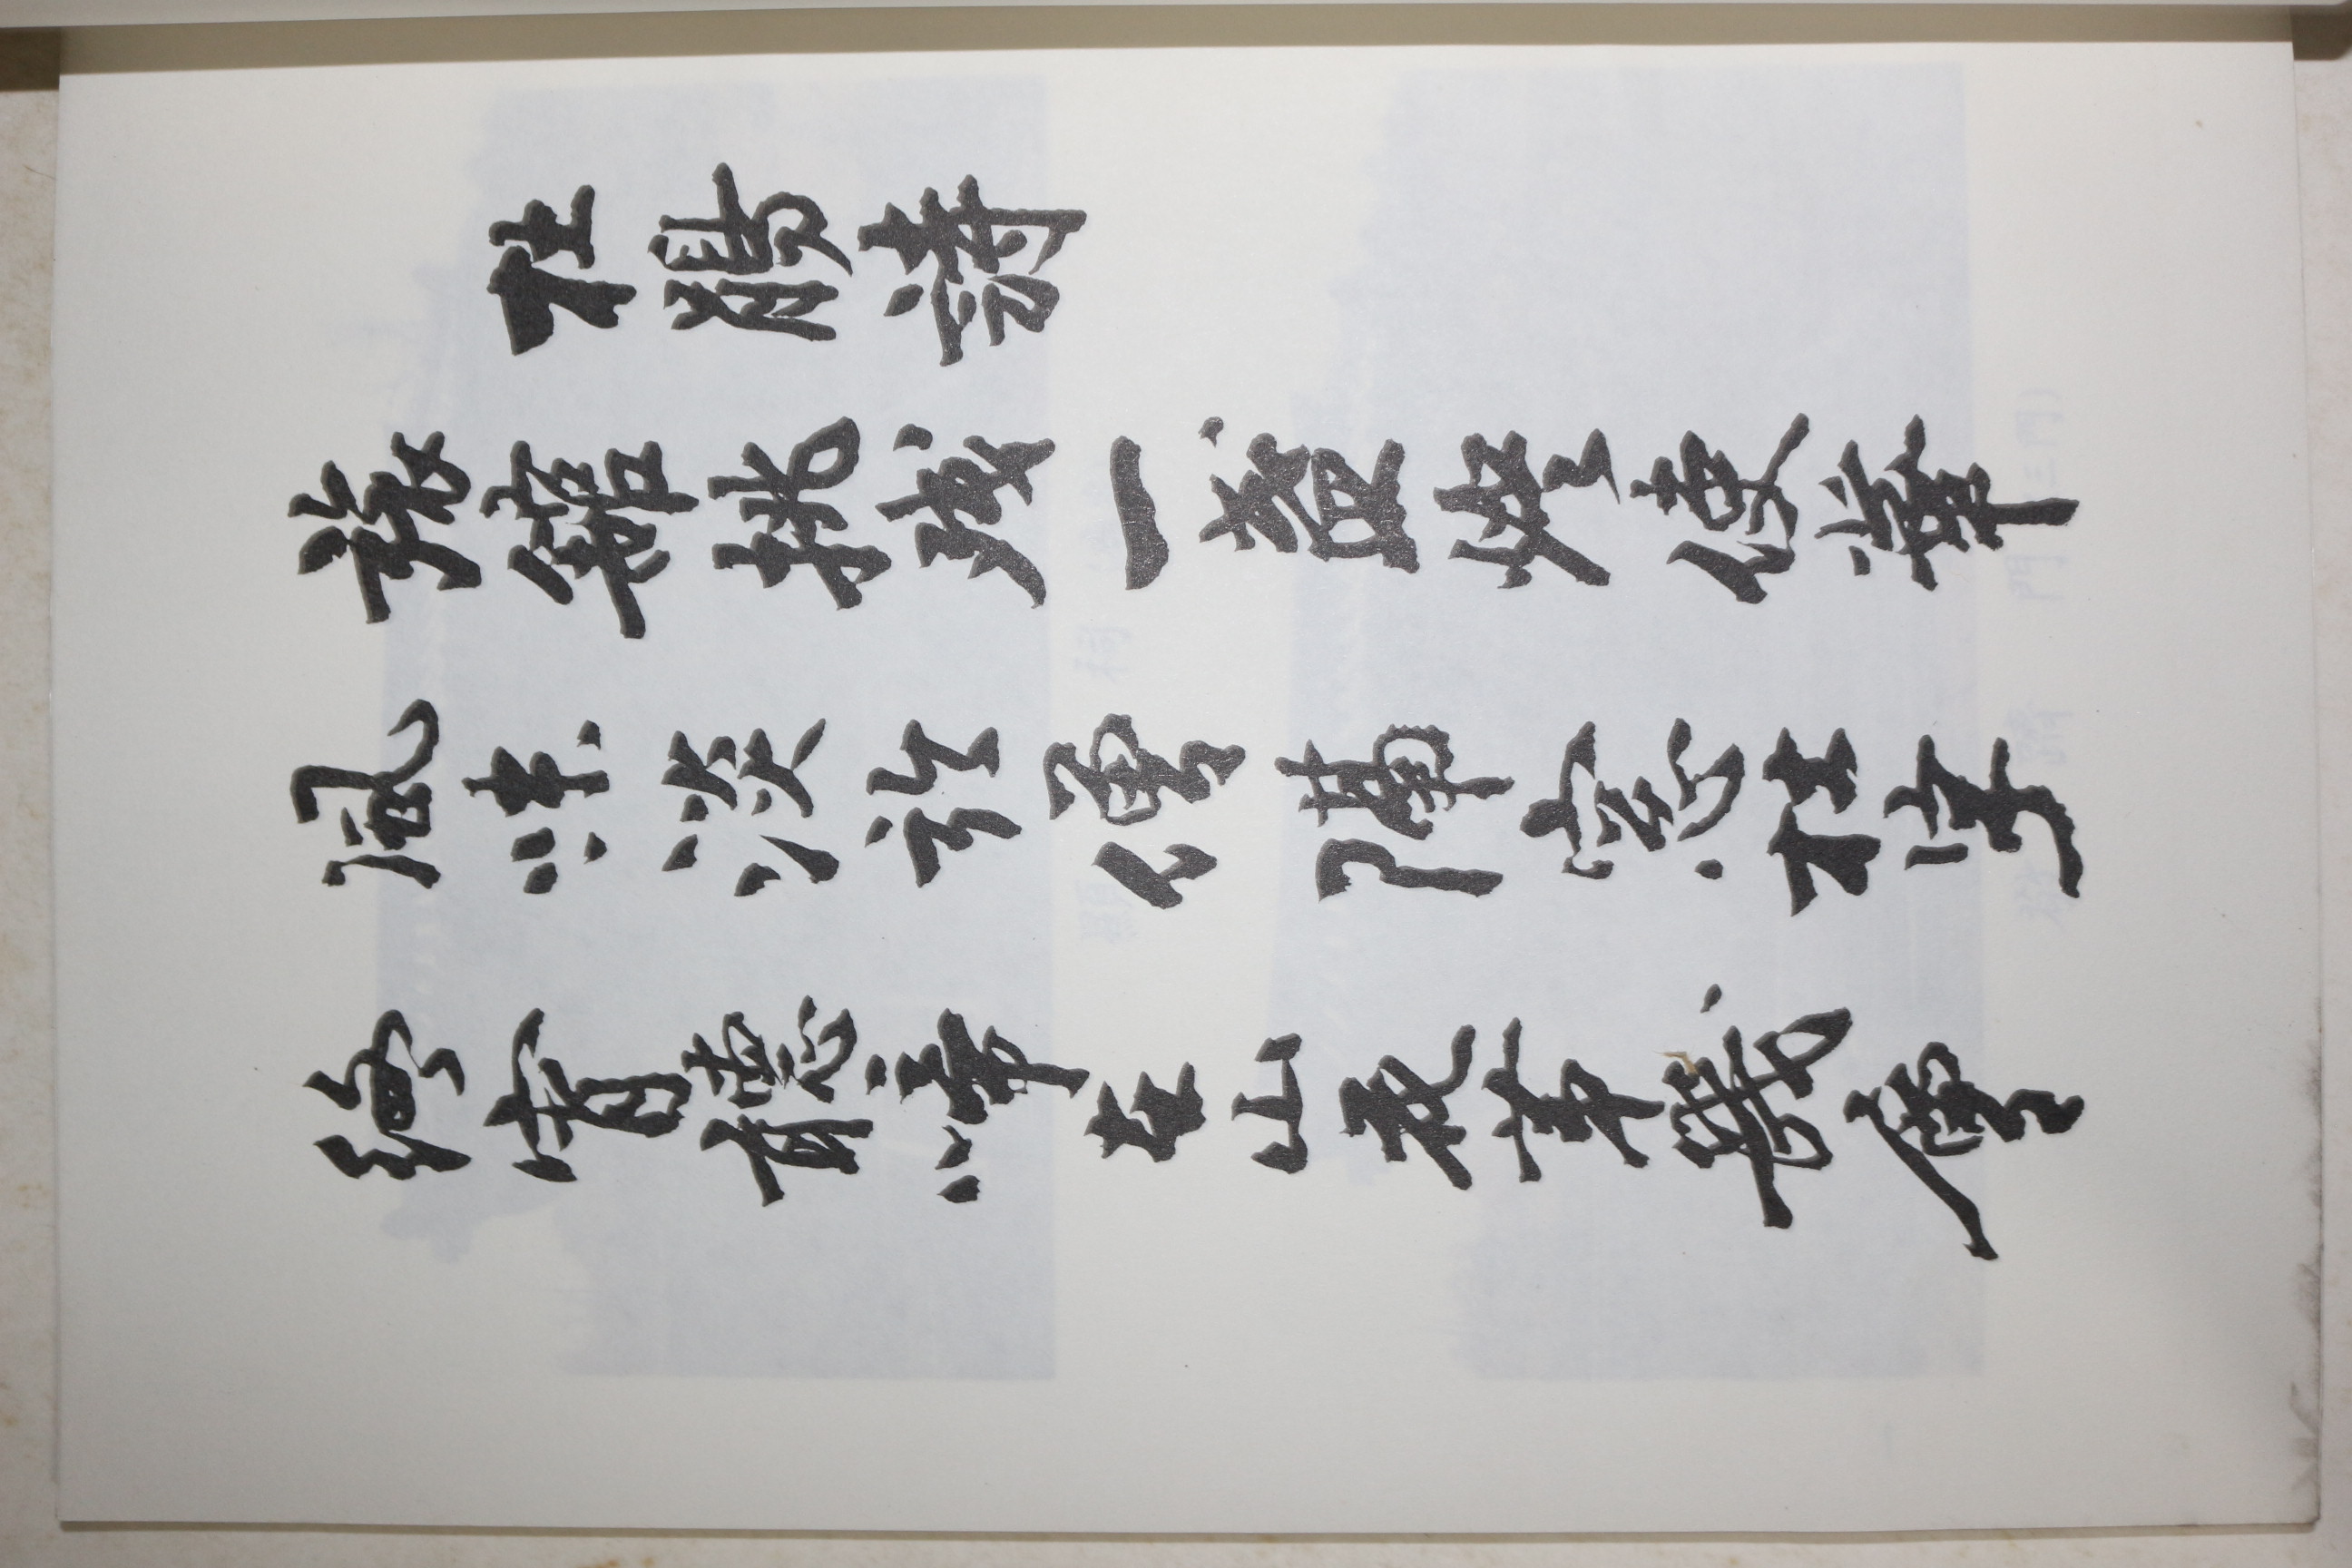 杜鵑詩
旅舘挑残一盞燈使華
風味淡於僧隔窓杜宇
終宵聽啼在山花苐幾層